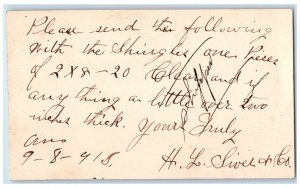 Please send the following
with the Shingles one Piece
of 2 X 8 - 20 Clear and if
anything a little over two
inches thick. Yours Truly
ans
9-8-915 H. L. Sives & Co.